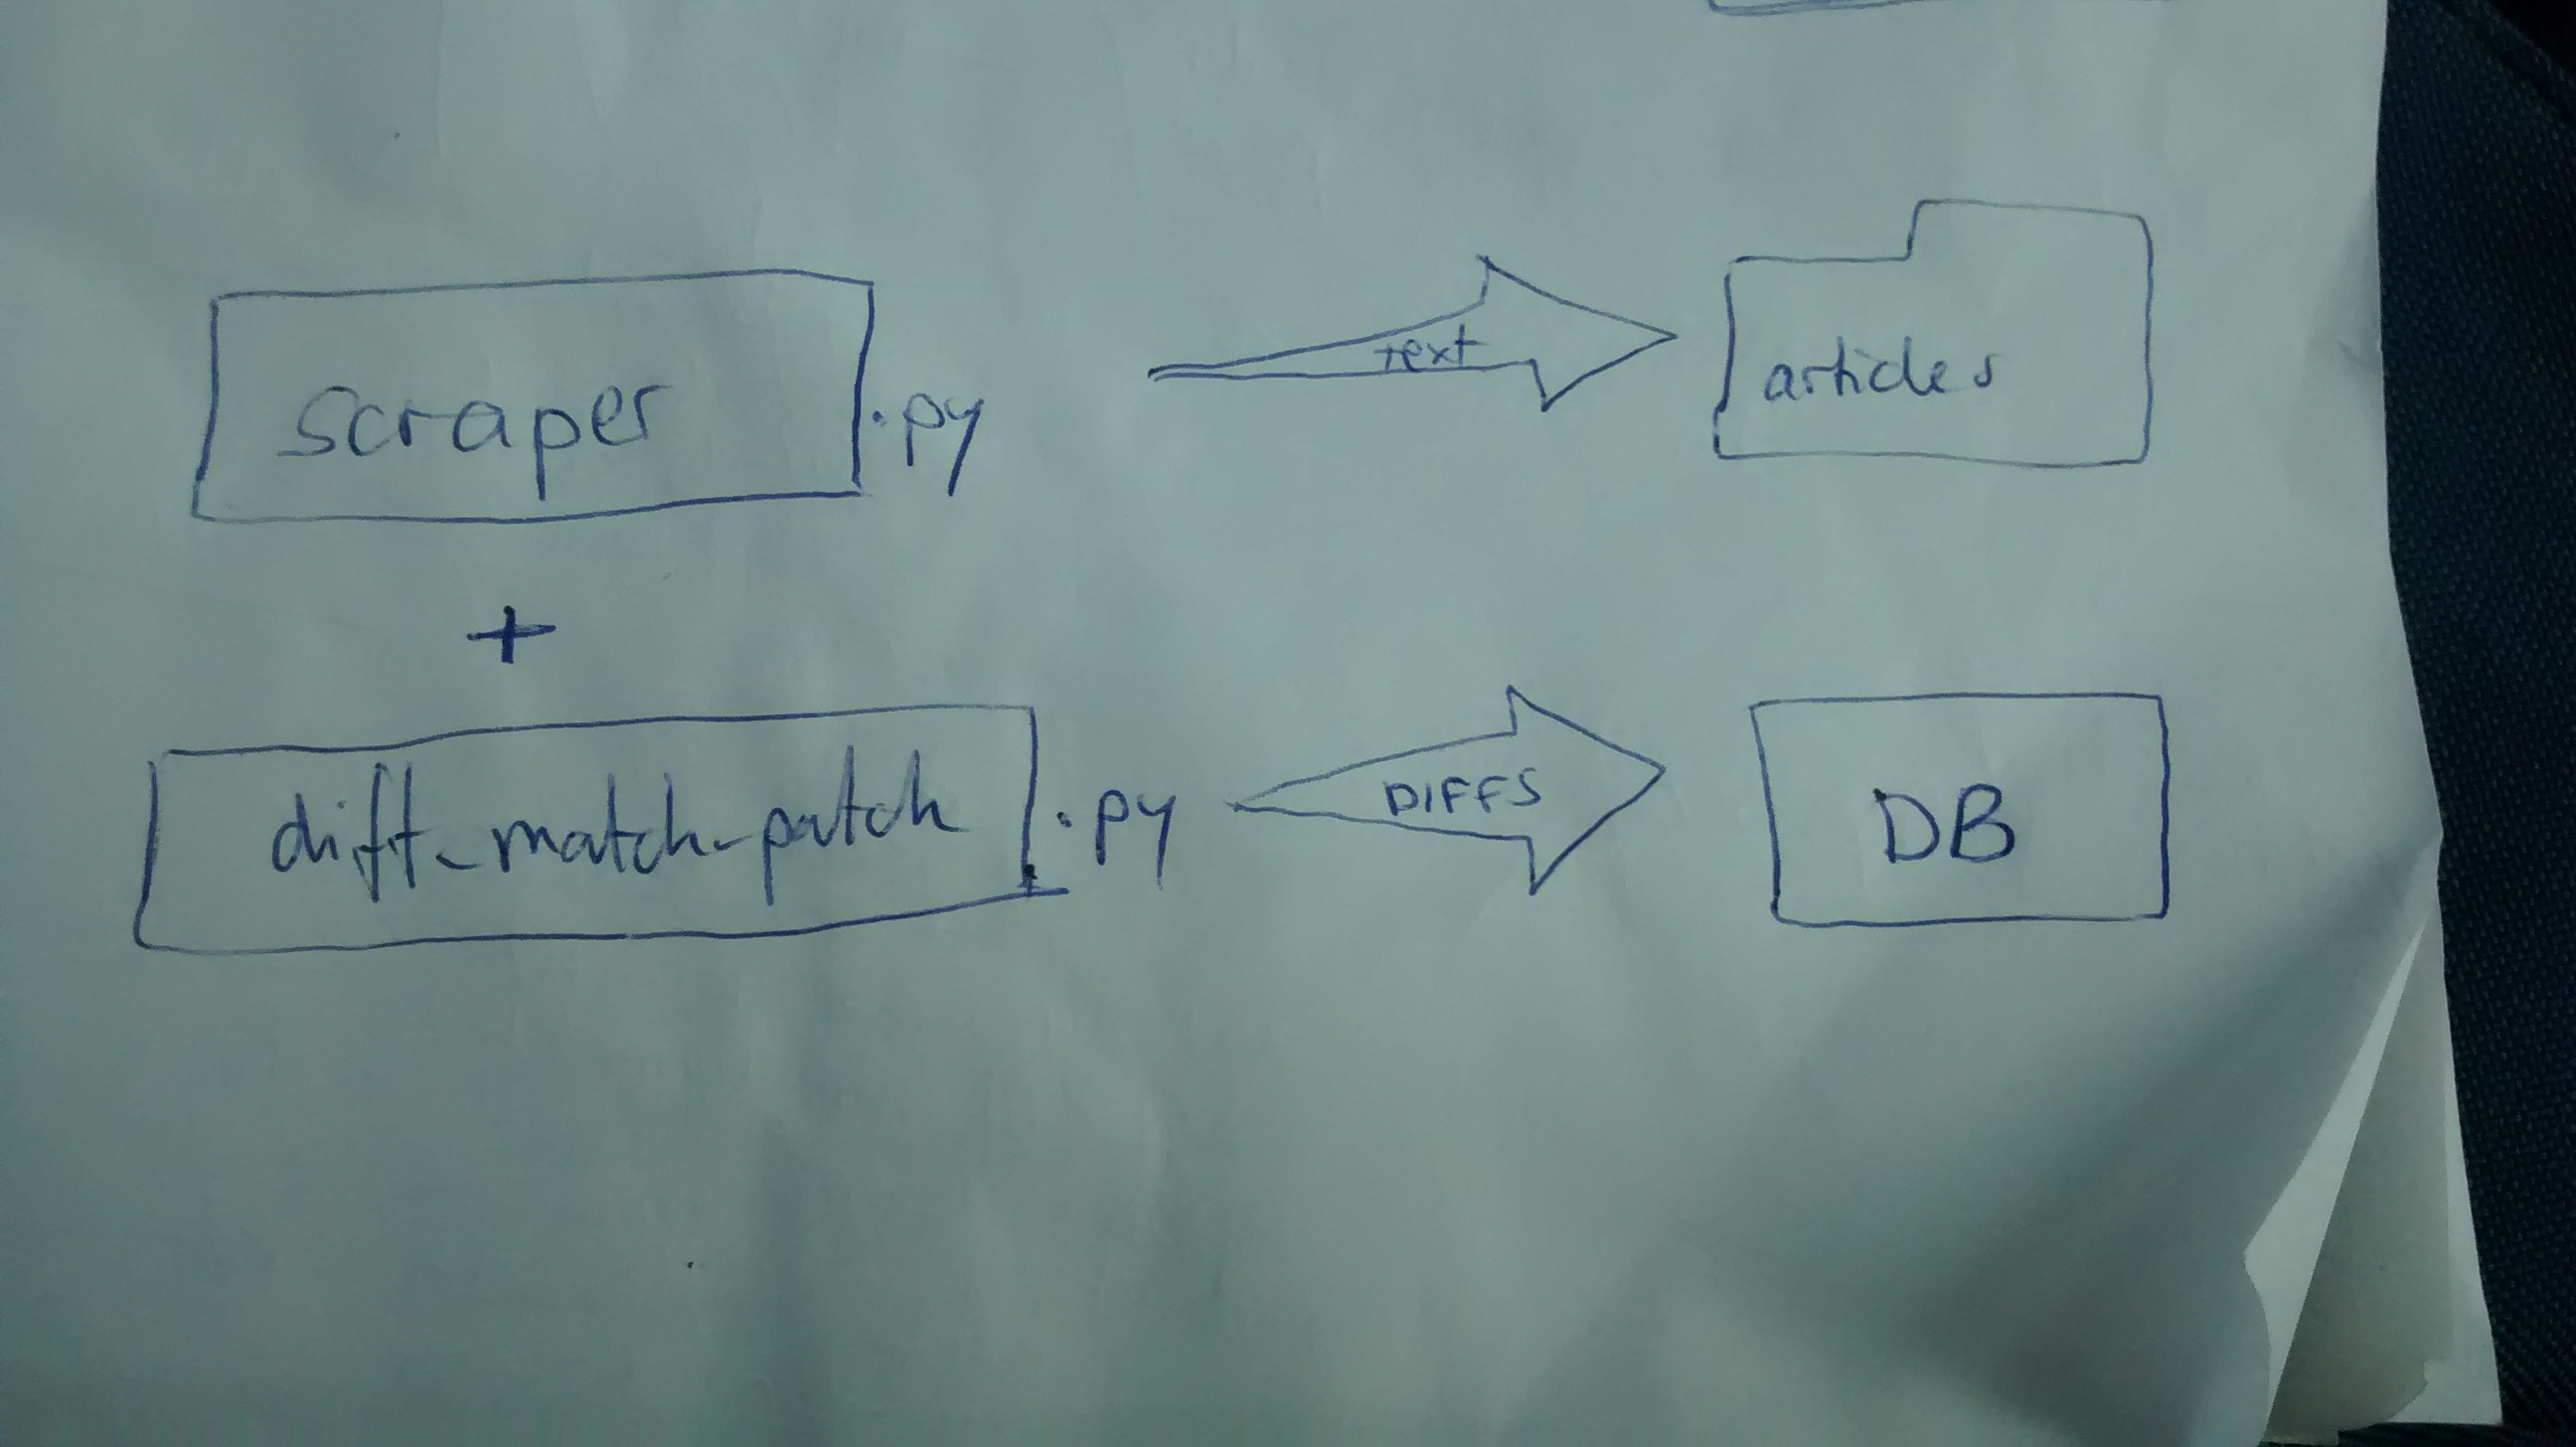 scraper .py
text
articles
+
diff_match_patch .py
DIFFS
DB